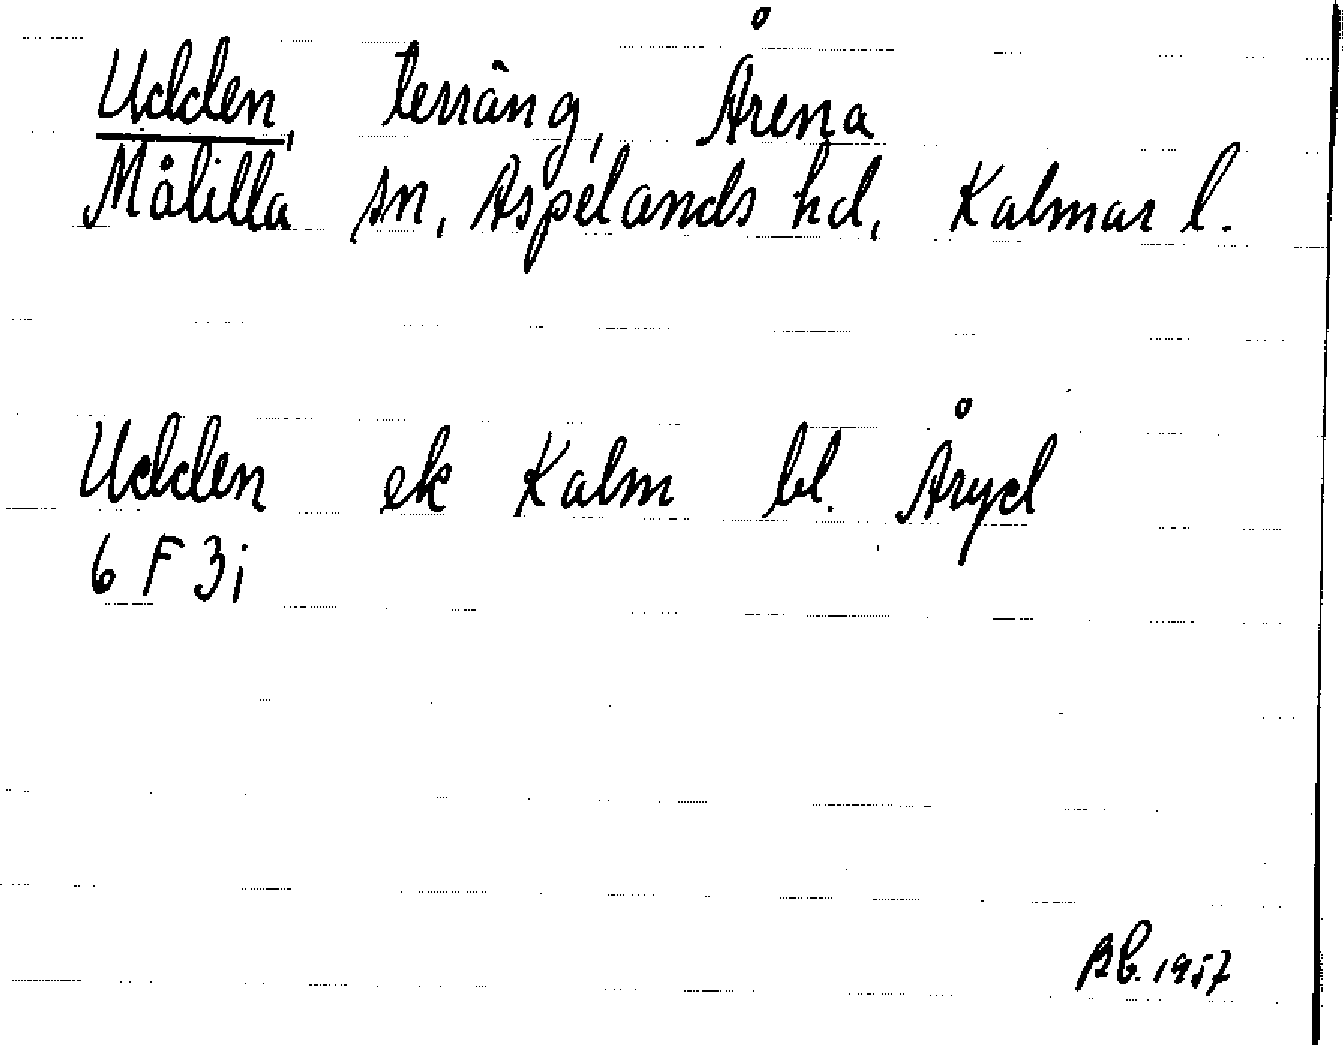 Udden, terräng, Årena
Målilla sn, Aspelands hd, Kalmar l.
Udden ek Kalm bl. Åryd
6 F 3i
Bb. 1957